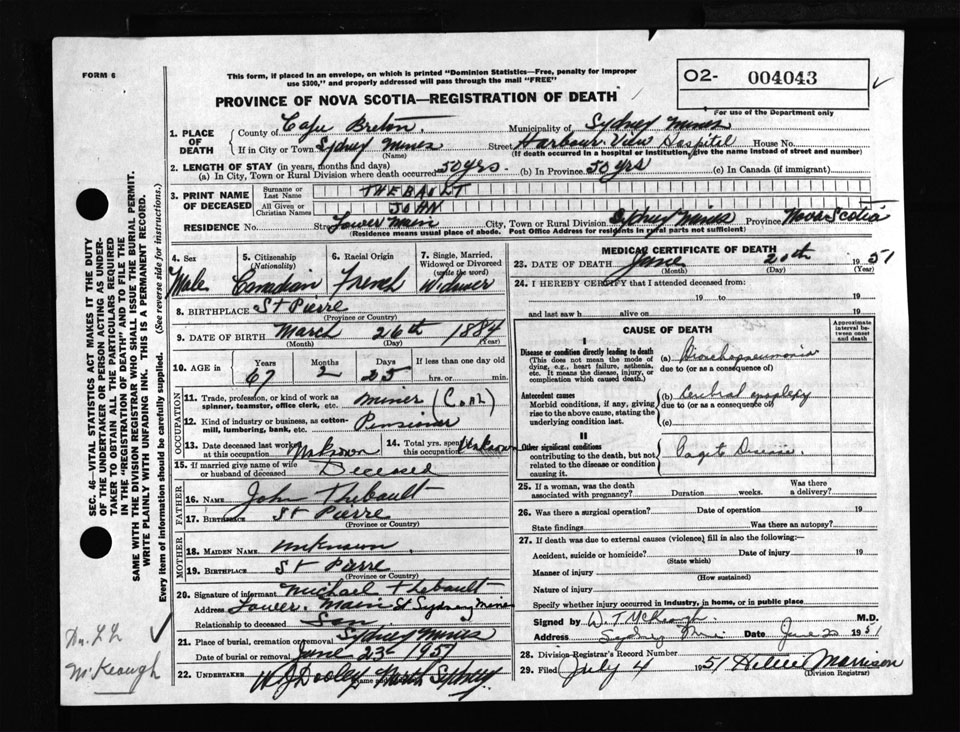 FORM 6
This form, if placed in an envelope, on which is printed "Dominion Statistics—Free, penalty for improper
use $300," and properly addressed will pass through the mail "FREE"
PROVINCE OF NOVA SCOTIA—REGISTRATION OF DEATH
02- 004043
For use of the Department only
1. PLACE OF DEATH
County of Cape Breton, Municipality of Sydney Mines
If in City or Town Sydney Mines (Name) Street Harbour View Hospital House No.
(If death occurred in a hospital or institution, give the name instead of street and number)
2. LENGTH OF STAY (in years, months and days)
(a) In City, Town or Rural Division where death occurred 50 yrs. (b) In Province 50 yrs (c) In Canada (if immigrant)
3. PRINT NAME OF DECEASED
Surname or Last Name THEBAULT
All Given or Christian Names JOHN
RESIDENCE No. Street Lower Main City, Town or Rural Division Sydney Mines Province Nova Scotia
(Residence means usual place of abode. Post Office Address for residents in rural parts not sufficient)
4. Sex Male
5. Citizenship (Nationality) Canadian
6. Racial Origin French
7. Single, Married, Widowed or Divorced (write the word) Widower
8. BIRTHPLACE St Pierre
(Province or Country)
9. DATE OF BIRTH March 26th 1884
(Month) (Day) (Year)
10. AGE in Years 67 Months 2 Days 25 If less than one day old hrs. or min.
OCCUPATION
11. Trade, profession, or kind of work as spinner, teamster, office clerk, etc. miner (Coal)
12. Kind of industry or business, as cotton-mill, lumbering, bank, etc. Pensioner
13. Date deceased last worked at this occupation Unknown
14. Total yrs. spent at this occupation Unknown
15. If married give name of wife or husband of deceased Deceased
FATHER
16. NAME John Thebault
17. BIRTHPLACE St Pierre
(Province or Country)
MOTHER
18. MAIDEN NAME unknown
19. BIRTHPLACE St Pierre
(Province or Country)
20. Signature of informant Michael Thebault
Address Lower Main St Sydney Mines
Relationship to deceased Son
21. Place of burial, cremation or removal Sydney Mines
Date of burial or removal June 23rd 1951
22. UNDERTAKER W J Dooley North Sydney
(Name and
MEDICAL CERTIFICATE OF DEATH
23. DATE OF DEATH June 20th 1951
(Month) (Day) (Year)
24. I HEREBY CERTIFY that I attended deceased from:
19 to 19
and last saw h alive on 19
CAUSE OF DEATH
Approximate interval between onset and death
I
Disease or condition directly leading to death
(This does not mean the mode of dying, e.g., heart failure, asthenia, etc. It means the disease, injury, or complication which caused death.)
(a) Bronchopneumonia
due to (or as a consequence of)
Antecedent causes
Morbid conditions, if any, giving rise to the above cause, stating the underlying condition last.
(b) Cerebral apoplexy
due to (or as a consequence of)
(c)
II
Other significant conditions contributing to the death, but not related to the disease or condition causing it.
Pagets Disease.
25. If a woman, was the death associated with pregnancy? Duration weeks. Was there a delivery?
26. Was there a surgical operation? Date of operation 19
State findings Was there an autopsy?
27. If death was due to external causes (violence) fill in also the following:—
Accident, suicide or homicide? Date of injury 19
(State which)
Manner of injury
(How sustained)
Nature of injury
Specify whether injury occurred in industry, in home, or in public place
Signed by W. T. McKeough M.D.
Address Sydney Mines Date June 20 1951
28. Division Registrar's Record Number
29. Filed July 4 1951 Morrison
(Division Registrar)
SEC. 46—VITAL STATISTICS ACT MAKES IT THE DUTY
OF THE UNDERTAKER OR PERSON ACTING AS UNDER-
TAKER TO OBTAIN ALL THE PARTICULARS REQUIRED
IN THE "REGISTRATION OF DEATH" AND TO FILE THE
SAME WITH THE DIVISION REGISTRAR WHO SHALL ISSUE THE BURIAL PERMIT.
WRITE PLAINLY WITH UNFADING INK. THIS IS A PERMANENT RECORD.
Every item of information should be carefully supplied. (See reverse side for instructions.)
McKeough